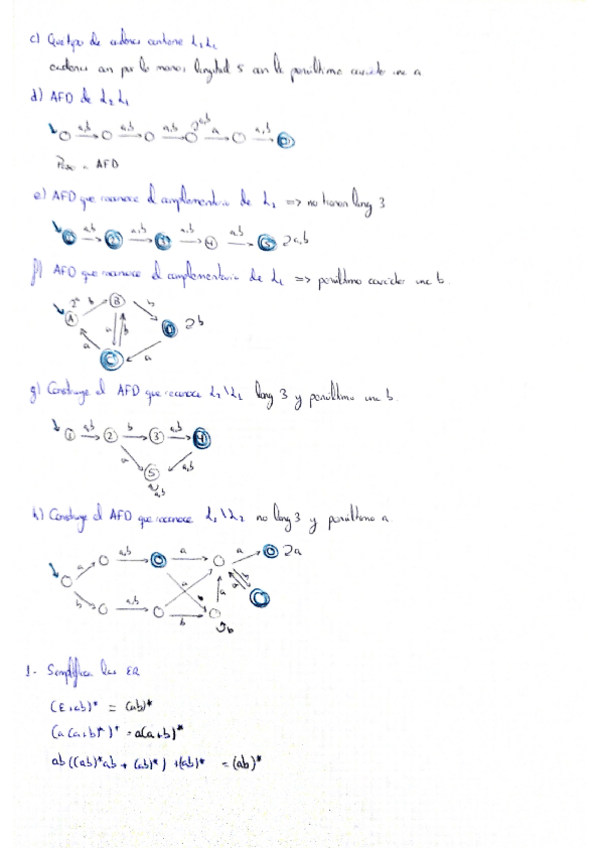 c) Que tipo de cadenas contiene L₁L₂
cadenas con por lo menos longitud 5 con le penúltimo carácter una a
d) AFD de L₂L₁
a,b a,b a,b a,b a a,b
AFD
e) AFD que reconoce el complementario de L₂ => no tienen long 3
a,b a,b a,b a,b a,b
1 2 3 4 5
f) AFD que reconoce el complementario de L₁ => penúltimo carácter una b.
A B C D
a b b a b a a b
g) Construye el AFD que reconoce L₂\L₁ long 3 y penúltimo una b.
1 a,b 2 b 3 a,b 4
a a,b
5
a,b
h) Construye el AFD que reconoce L₁\L₂ no long 3 y penúltimo a
a a,b a a a
b a,b b a b
1- Simplifica las ER
(ε+ab)* = (ab)*
(a(a+b)*)* = a(a+b)*
ab((ab)*ab + (ab)*) + (ab)* = (ab)*